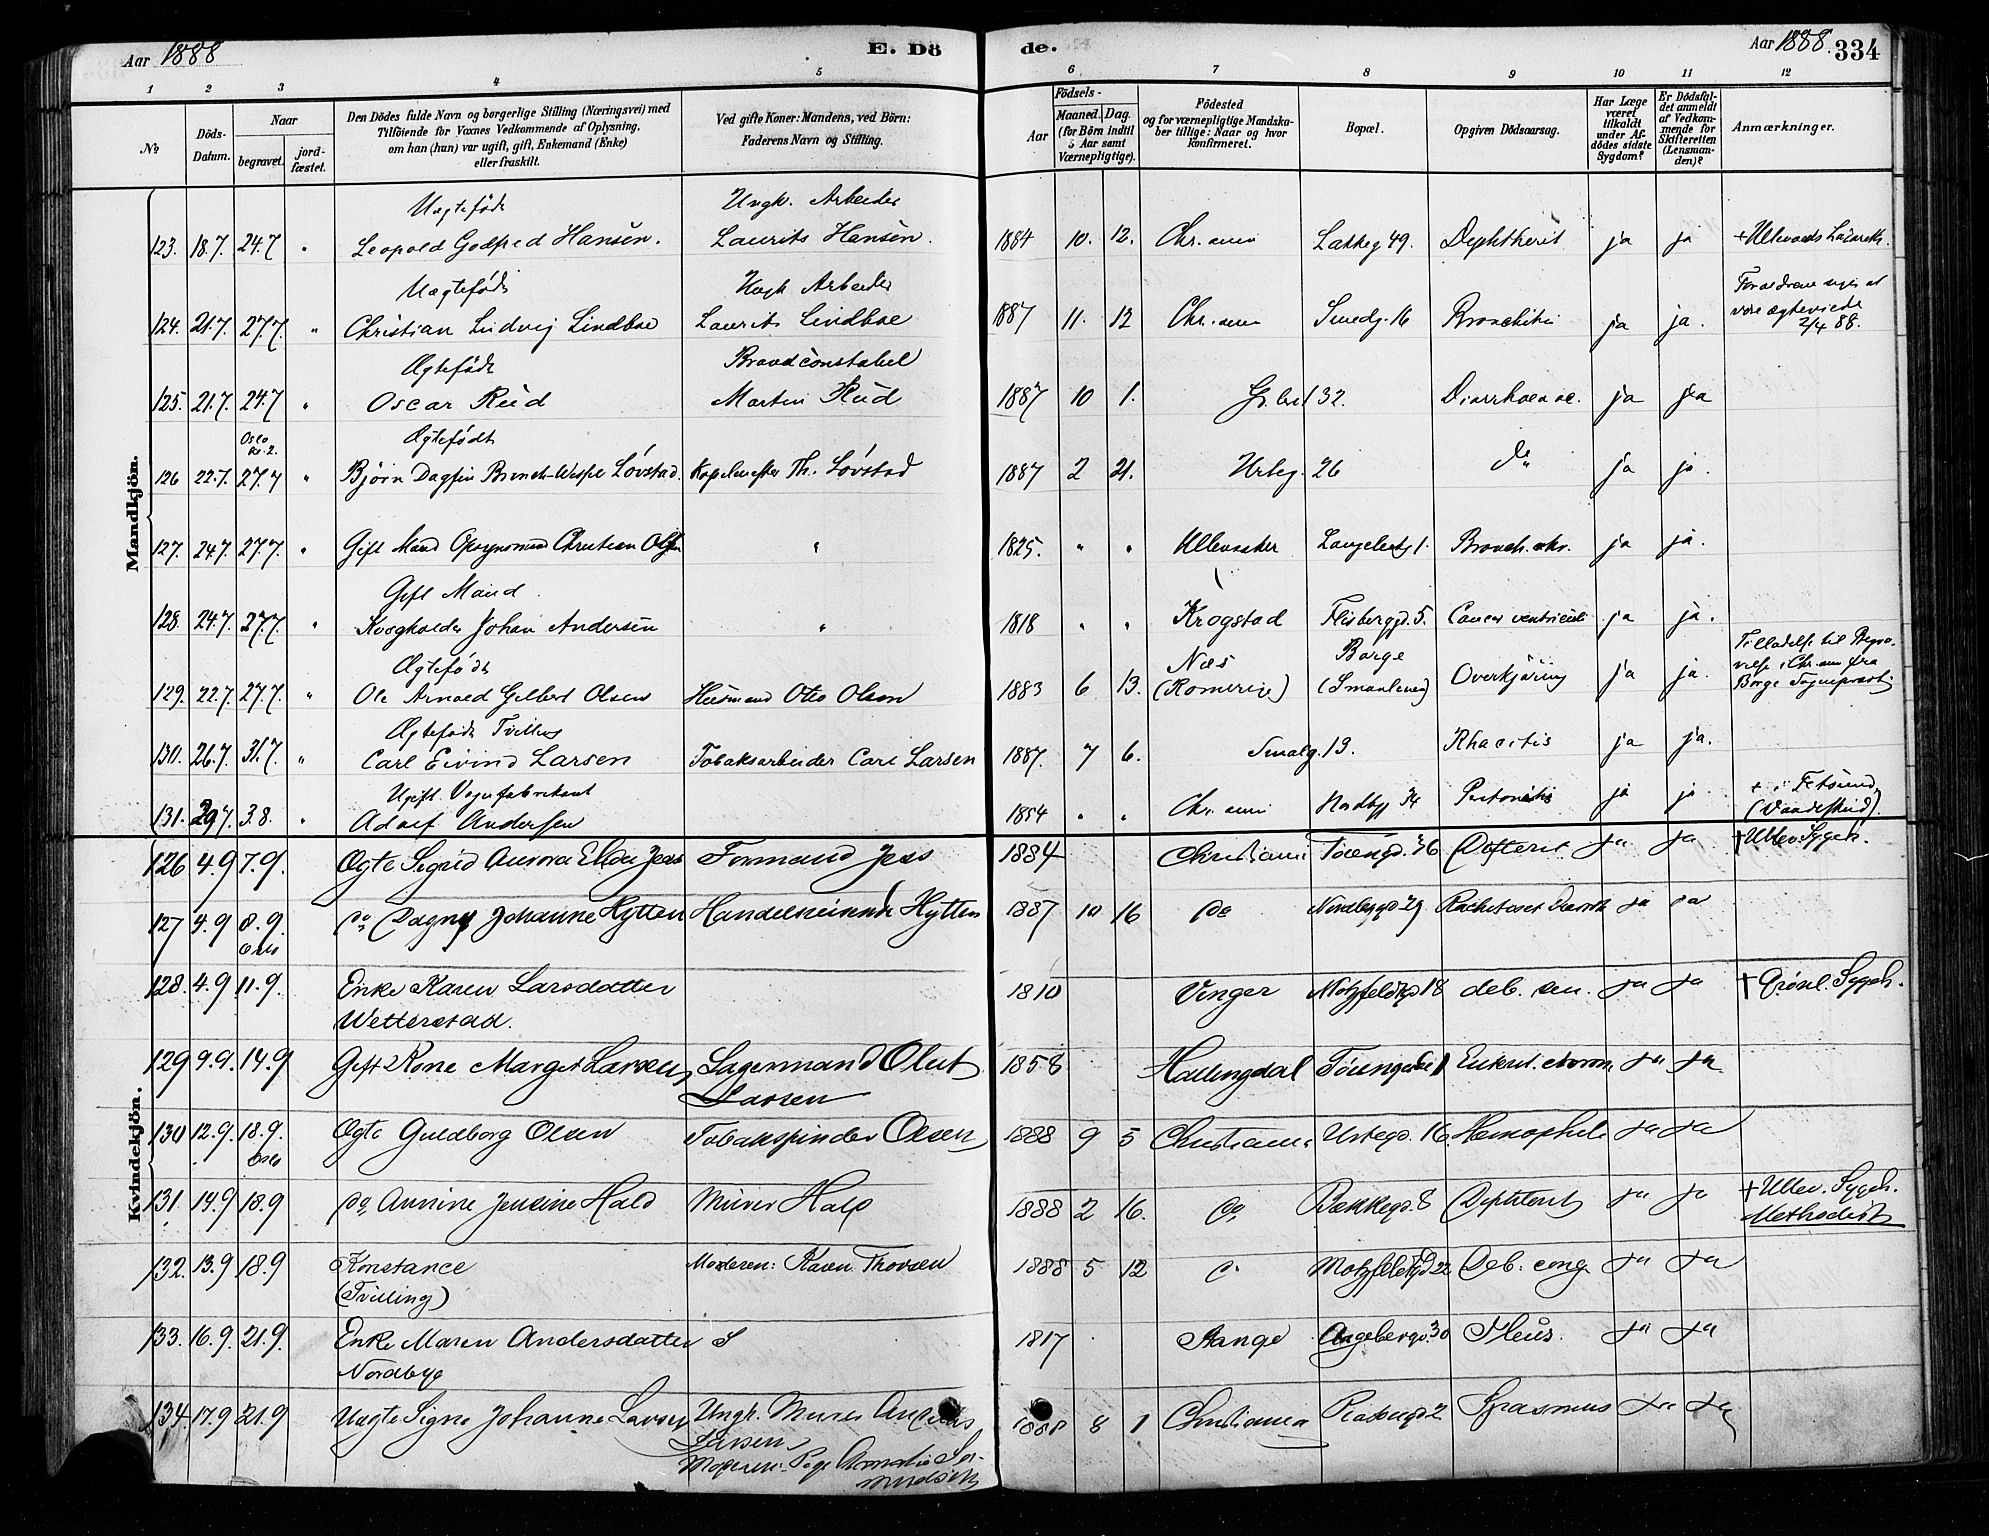 Aar 1888
E. Dö
de.
Aar 1888. 334
1 2 3 4 5 6 7 8 9 10 11 12
No
Döds-Datum.
Naar
begravet.
jord-fæstet.
Den Dödes fulde Navn og borgerlige Stilling (Næringsvei) med
Tilföiende for Voxnes Vedkommende af Oplysning,
om han (hun) var ugift, gift, Enkemand (Enke)
eller fraskilt.
Ved gifte Koner: Mandens, ved Börn:
Faderens Navn og Stilling.
Födsels-
Aar Maaned. Dag.
(for Börn indtil
5 Aar samt
Værnepligtige).
Födested
og for værnepligtige Mandska-
ber tillige: Naar og hvor
konfirmeret.
Bopæl.
Opgiven Dödsaarsag.
Har Læge
været
tilkaldt
under Af-
dödes sidste
Sygdom?
Er Dödsfal-
det anmeldt
af Vedkom-
mende for
Skifteretten
(Lensman-
den)?
Anmærkninger.
Mandkjön.
Uægtefödt Ungk. Arbeider
123. 18.7. 24.7 " Leopold Godfred Hansen. Laurits Hansen. 1884 10. 12. Chr.ania Lakkeg 49. Diphtherit ja ja + Ullevaals Lazareth.
Uægtefödt Ungk Arbeider
124. 21.7. 27.7. " Christian Ludvig Lindboe Laurits Lindboe 1887 11. 12 Chr.ania Smedg. 16 Bronchitis ja ja. Forældrene siges at
være ægteviede
2/4 88.
Ægtefödt Brandconstabel
125. 21.7. 24.7 " Oscar Rud Martin Rud 1887 10 1. 32. Diarrhoea ac. ja ja
Oslo
Ægtefödt
126 22.7. 27.7 " Björn Dagfin Løvstad. Kapelmester Th. Løvstad 1887 2 21. Urteg. 26 do ja ja.
127. 24.7 27.7. " Gift Mand Opsynsmand Christian Olsen " 1825. " " Ullensaker Langeleg 1. Bronch. chr. ja ja.
Gift Mand.
128. 24.7. 27.7. " Kvægholder Johan Andersen " 1818 " " Krogstad Flisberggd. 5. Cancer ventriculi ja ja.
Ægtefödt
129. 22.7. 27.7. " Ole Arnold Gilbert Olsen Huusmand Otto Olsen 1883 6 13. Næs
(Romerige) Borge
(Smaalenene) Overkjöring ja ja. Tilladelse til Begra-
velse i Chr.ania fra
Borge Sognepræst
Ægtefödt Tvilling
130. 26.7. 31.7. " Carl Eivind Larsen Tobaksarbeider Carl Larsen 1887. 7 6. Smalg. 13. Rhacitis ja ja.
Ugift. Vognfabrikant
131. 29.7. 3.8. " Adolf Andersen 1854 " " Chr.ania Nordbyg 34 Peritonitis ja ja + i Fetsund
(Vaadeskud).
Kvindekjön.
126 4.9 7.9. Ægte Sigrid Aurora Elida Jess Formand Jess 1884 Christiania Töiengd. 36 Difterit ja ja + Ullev. Sygeh.
127 4.9 8.9.
Oslo do Dagny Johanne Hytten Hytten 1887 10 16 do Nordbygd 29 ja ja
128. 4.9 11.9. Enke Karen Larsdatter
Wetterstad. 1810 Vinger Motzfeldtgd 18 deb. sen. ja ja + Grönl. Sygeh.
129 9.9. 14.9 Gift Kone Marget Larsen Lagermand Oluf
Larsen 1858 Hallingdal ja ja
130 12.9. 18.9.
Oslo Ægte Guldborg Olsen Tobakspinder Olsen 1888 9 5 Christiania Urtegd. 16. Hemophili ja ja
131 14.9 18.9 do Annine Jensine Hald Murer Hald 1888 2 16. do Bakkegd. 8 Diphterit ja ja + Ullev. Sygeh.
Methodist
132. 13.9 18.9 Konstance
(Tvilling) Moderen: Karen Thorsen 1888 5 12 do Motzfeldtgd 22 Deb. cong. ja ja
133. 16.9. 21.9. Enke Maren Andersdatter
Nordbye 1817 Stange 30 Ileus. ja ja
134 17.9 21.9 Uægte Signe Johanne Larsen Ungk. Murer Andreas
Larsen
Moderen: Pige 1888 8 1 Christiania Spasmus ja ja